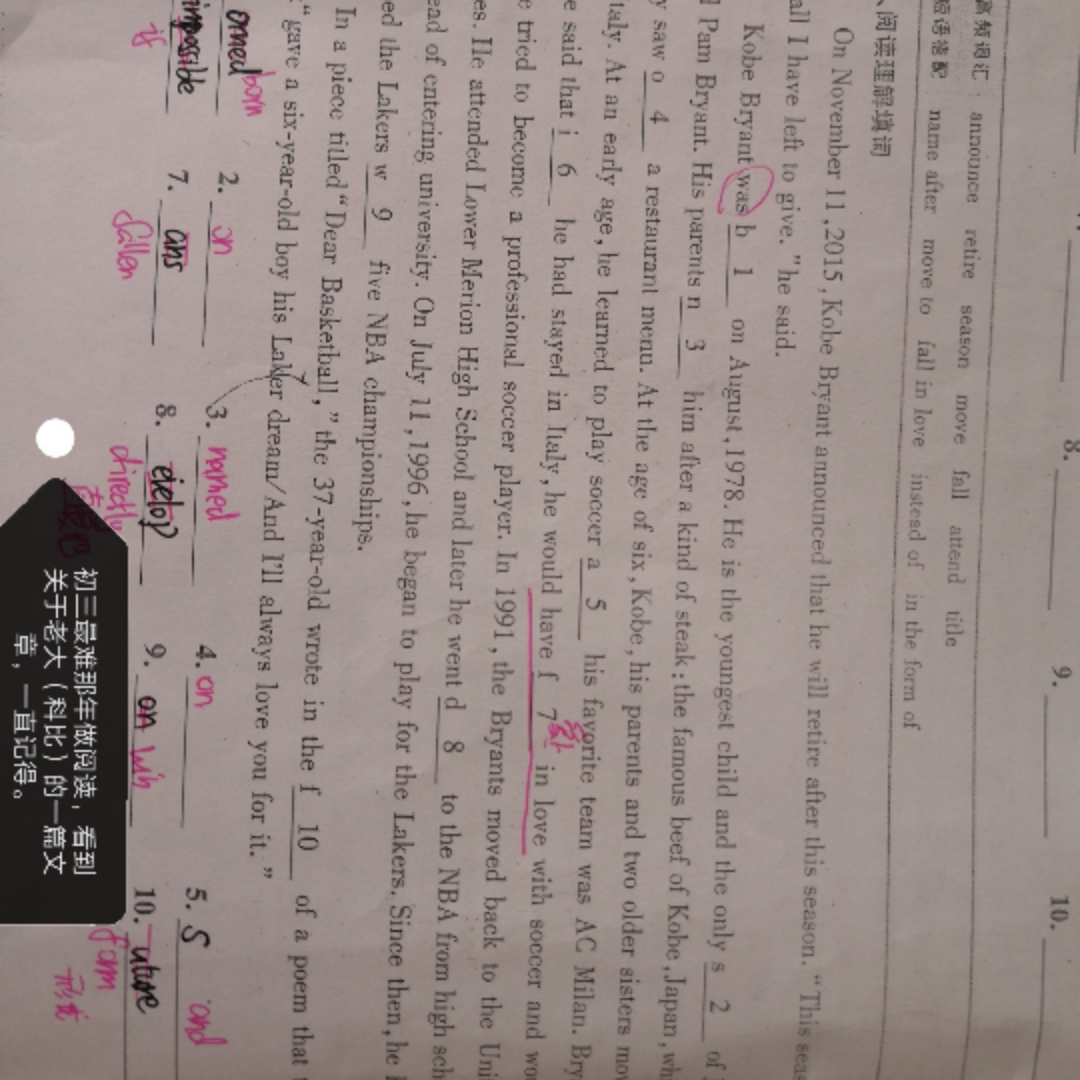 8. 9. 10.
高频词汇 announce retire season move fall attend title
短语搭配 name after move to fall in love instead of in the form of
阅读理解填词
On November 11,2015, Kobe Bryant announced that he will retire after this season. "This seas
all I have left to give."he said.
Kobe Bryant was b 1 on August,1978. He is the youngest child and the only s 2 of
Pam Bryant. His parents n 3 him after a kind of steak:the famous beef of Kobe,Japan,wh
y saw o 4 a restaurant menu. At the age of six,Kobe,his parents and two older sisters mov
taly. At an early age,he learned to play soccer a 5 his favorite team was AC Milan. Bry
e said that i 6 he had stayed in Italy,he would have f 7 in love with soccer and wou
e tried to become a professional soccer player. In 1991,the Bryants moved back to the Uni
es. He attended Lower Merion High School and later he went d 8 to the NBA from high sch
ead of entering university. On July 11,1996,he began to play for the Lakers. Since then,he
ed the Lakers w 9 five NBA championships.
In a piece titled"Dear Basketball,"the 37-year-old wrote in the f 10 of a poem that
"gave a six-year-old boy his Laker dream/And I'll always love you for it."
orned born 2. on 3. named 4. on 5. S and
impossible if 7. ans fallen 8. directly 9. on with 10. uture form 形式
初三最难那年做阅读，看到
关于老大（科比）的一篇文
章，一直记得。